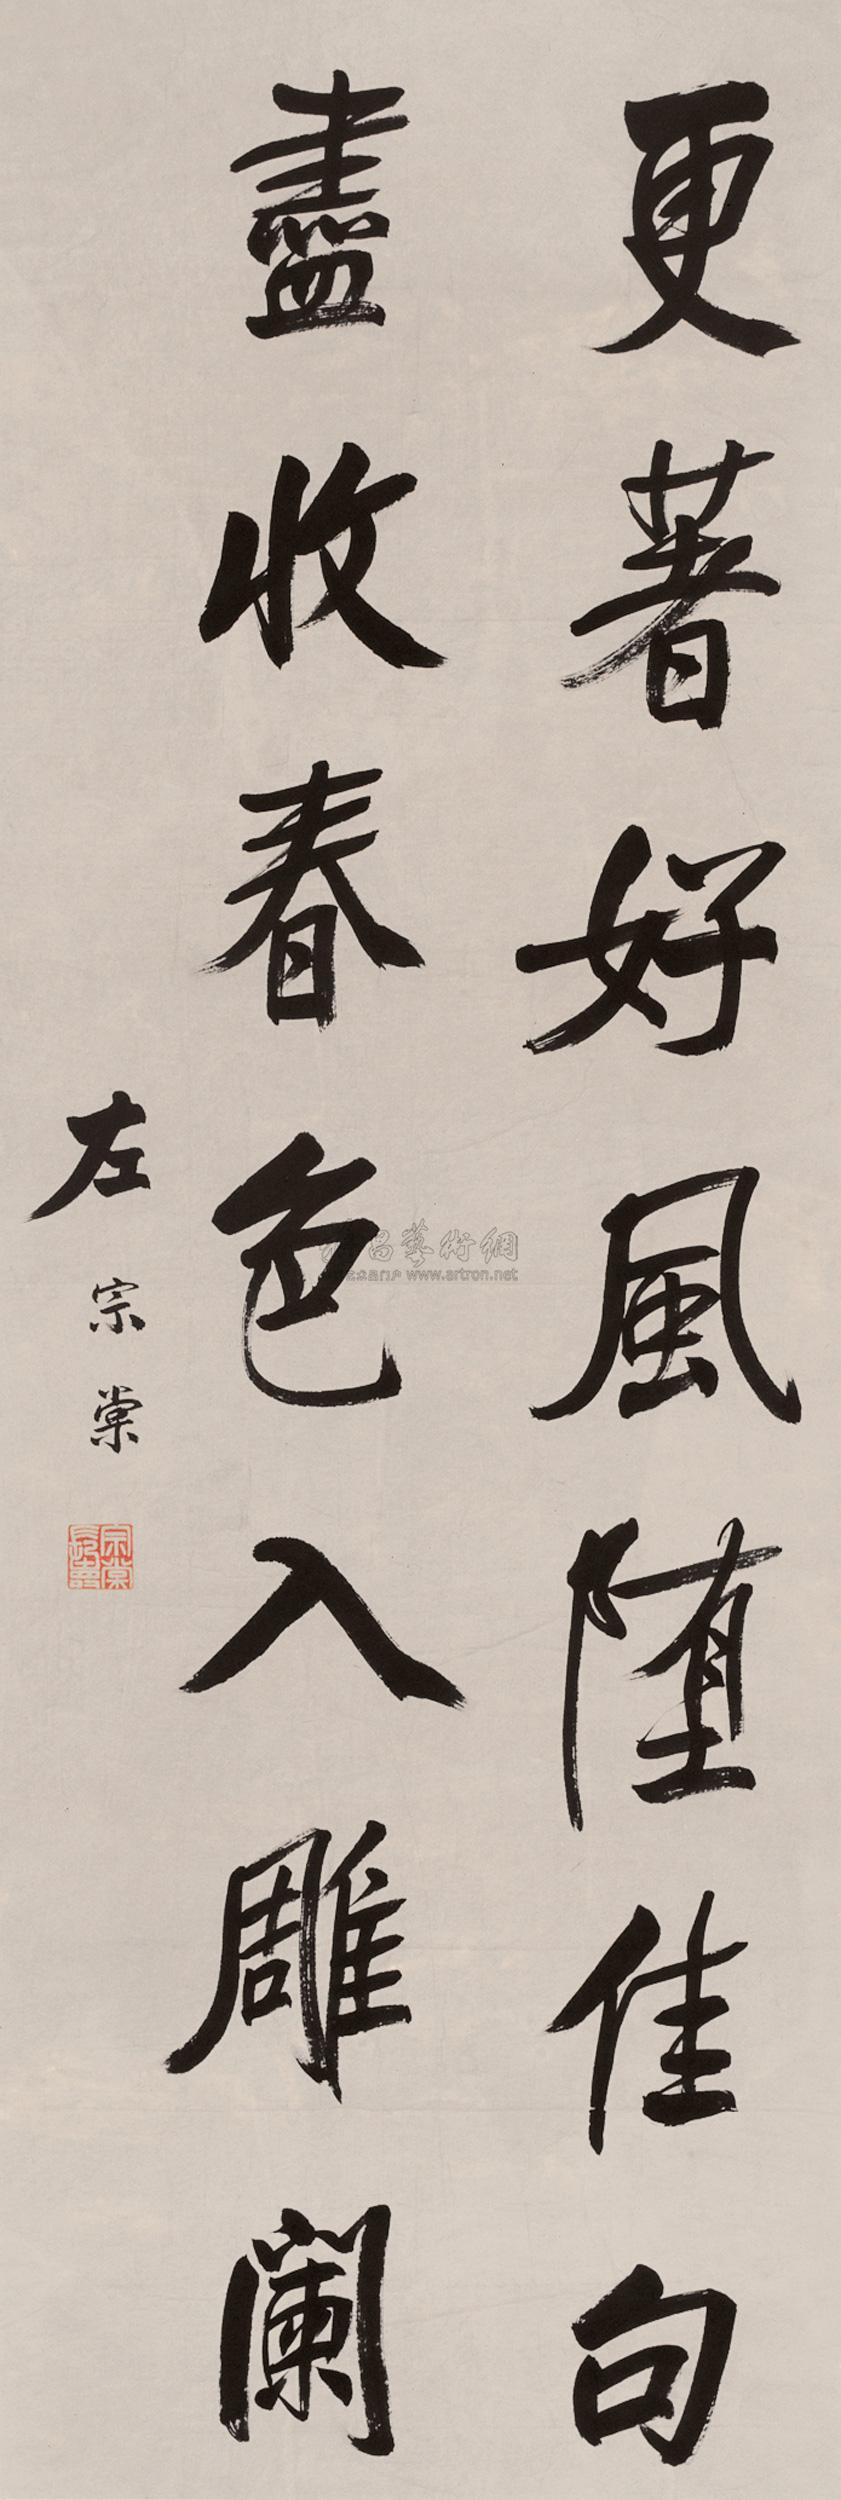 更著好風堕佳句
盡收春色入雕闌
左宗棠
藝術網
www.artron.net